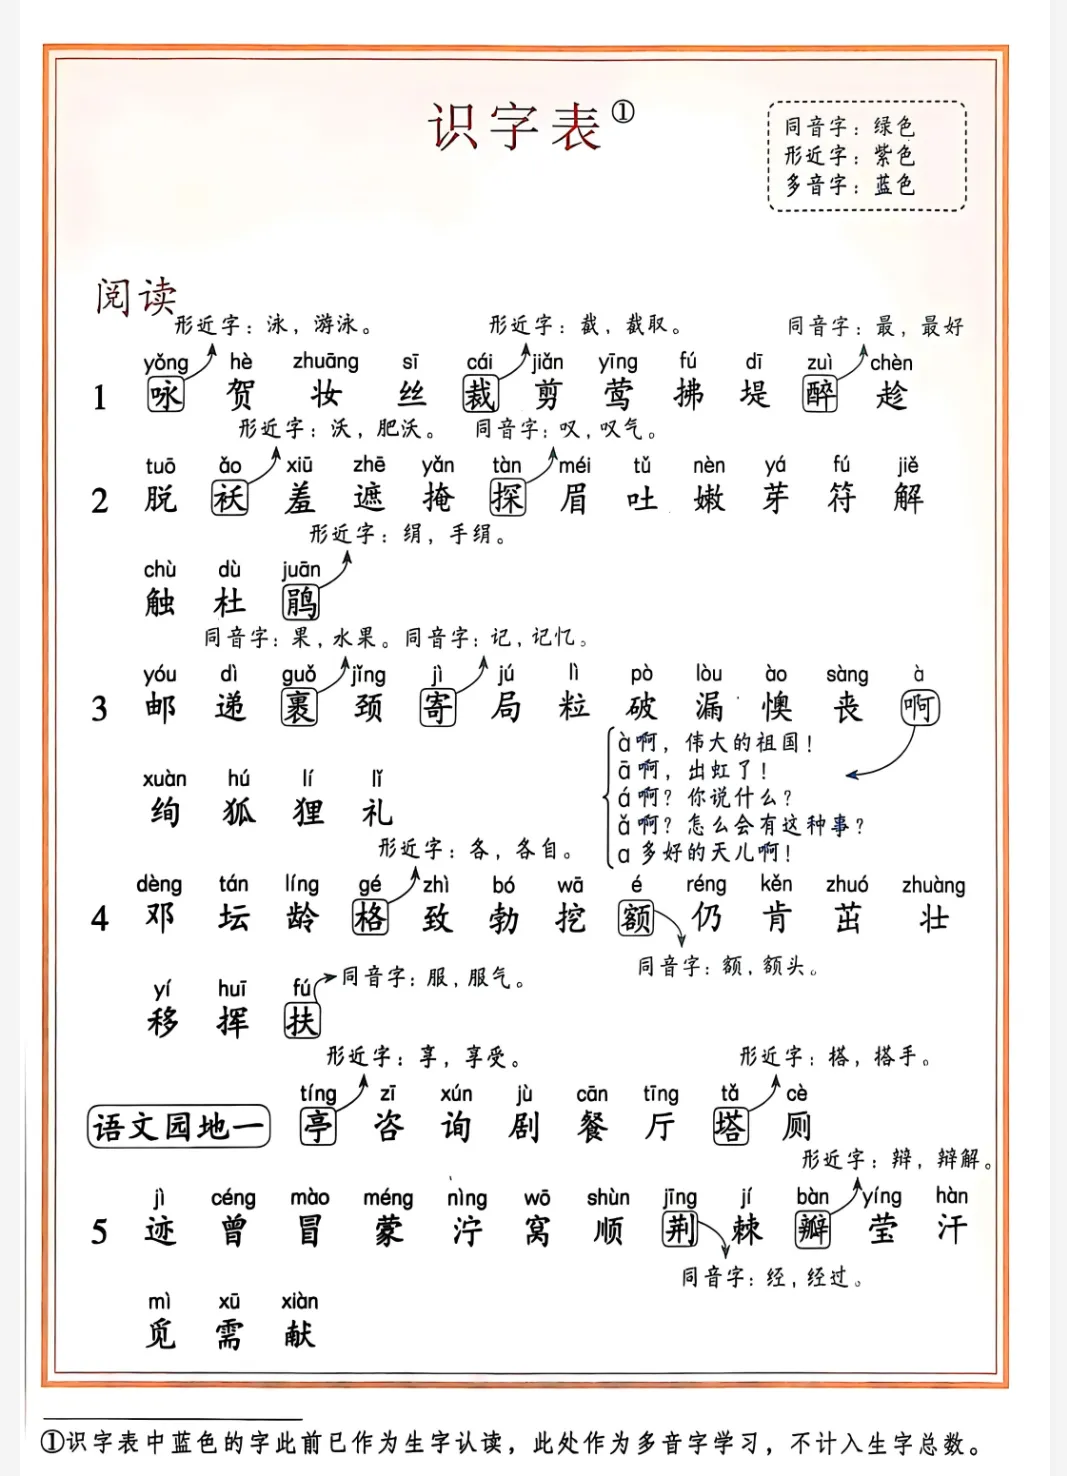 识字表①
同音字：绿色
形近字：紫色
多音字：蓝色
阅读
形近字：泳，游泳。 形近字：截，截取。 同音字：最，最好
yǒng hè zhuāng sī cái jiǎn yīng fú dī zuì chèn
1 咏 贺 妆 丝 裁 剪 莺 拂 堤 醉 趁
形近字：沃，肥沃。 同音字：叹，叹气。
tuō ǎo xiū zhē yǎn tàn méi tǔ nèn yá fú jiě
2 脱 袄 羞 遮 掩 探 眉 吐 嫩 芽 符 解
形近字：绢，手绢。
chù dù juān
触 杜 鹃
同音字：果，水果。 同音字：记，记忆。
yóu dì guǒ jǐng jì jú lì pò lòu ào sàng à
3 邮 递 裹 颈 寄 局 粒 破 漏 懊 丧 啊
à啊，伟大的祖国！
ā啊，出虹了！
á啊？你说什么？
ǎ啊？怎么会有这种事？
ɑ 多好的天儿啊！
xuàn hú lí lǐ
绚 狐 狸 礼
形近字：各，各自。
dèng tán líng gé zhì bó wā é réng kěn zhuó zhuàng
4 邓 坛 龄 格 致 勃 挖 额 仍 肯 茁 壮
同音字：额，额头。
同音字：服，服气。
yí huī fú
移 挥 扶
形近字：享，享受。 形近字：搭，搭手。
tíng zī xún jù cān tīng tǎ cè
语文园地一 亭 咨 询 剧 餐 厅 塔 厕
形近字：辩，辩解。
jì céng mào méng nìng wō shùn jīng jí bàn yíng hàn
5 迹 曾 冒 蒙 泞 窝 顺 荆 棘 瓣 莹 汗
同音字：经，经过。
mì xū xiàn
觅 需 献
①识字表中蓝色的字此前已作为生字认读，此处作为多音字学习，不计入生字总数。